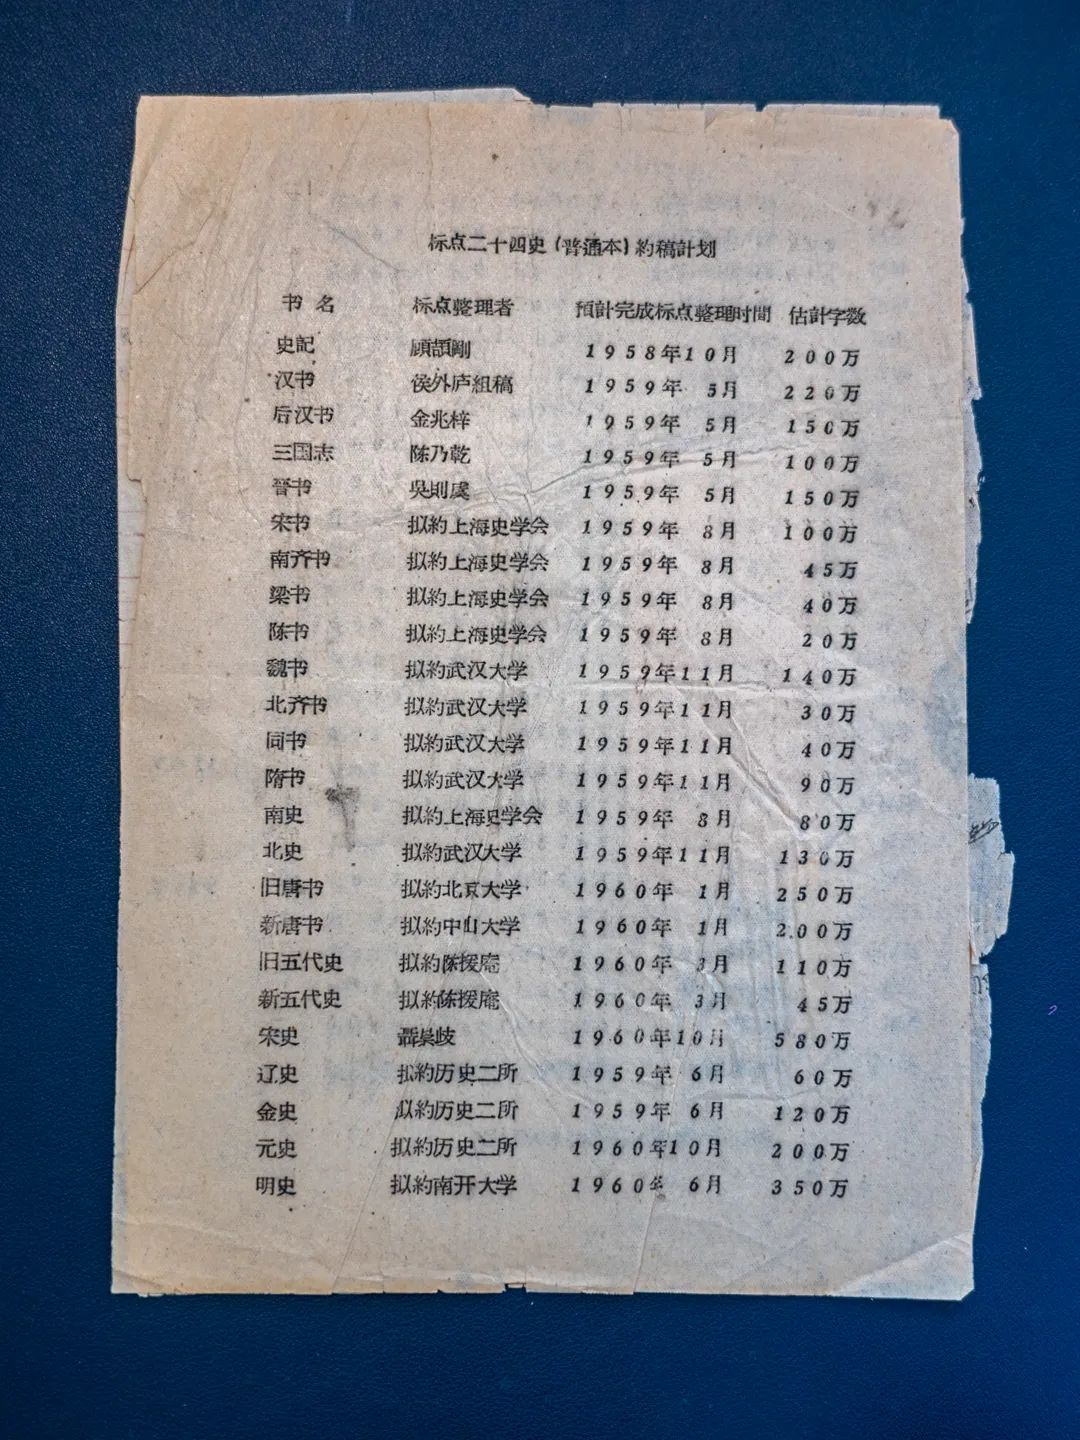 标点二十四史(普通本)約稿計划
书名 标点整理者 預計完成标点整理时間 估計字数
史記 顧頡剛 1958年10月 200万
汉书 侯外庐組稿 1959年 5月 220万
后汉书 金兆梓 1959年 5月 150万
三国志 陈乃乾 1959年 5月 100万
晉书 吳則虞 1959年 5月 150万
宋书 拟約上海史学会 1959年 8月 100万
南齐书 拟約上海史学会 1959年 8月 45万
梁书 拟約上海史学会 1959年 8月 40万
陈书 拟約上海史学会 1959年 8月 20万
魏书 拟約武汉大学 1959年11月 140万
北齐书 拟約武汉大学 1959年11月 30万
周书 拟約武汉大学 1959年11月 40万
隋书 拟約武汉大学 1959年11月 90万
南史 拟約上海史学会 1959年 8月 80万
北史 拟約武汉大学 1959年11月 130万
旧唐书 拟約北京大学 1960年 1月 250万
新唐书 拟約中山大学 1960年 1月 200万
旧五代史 拟約陈援庵 1960年 3月 110万
新五代史 拟約陈援庵 1960年 3月 45万
宋史 聶崇歧 1960年10月 580万
辽史 拟約历史二所 1959年 6月 60万
金史 拟約历史二所 1959年 6月 120万
元史 拟約历史二所 1960年10月 200万
明史 拟約南开大学 1960年 6月 350万